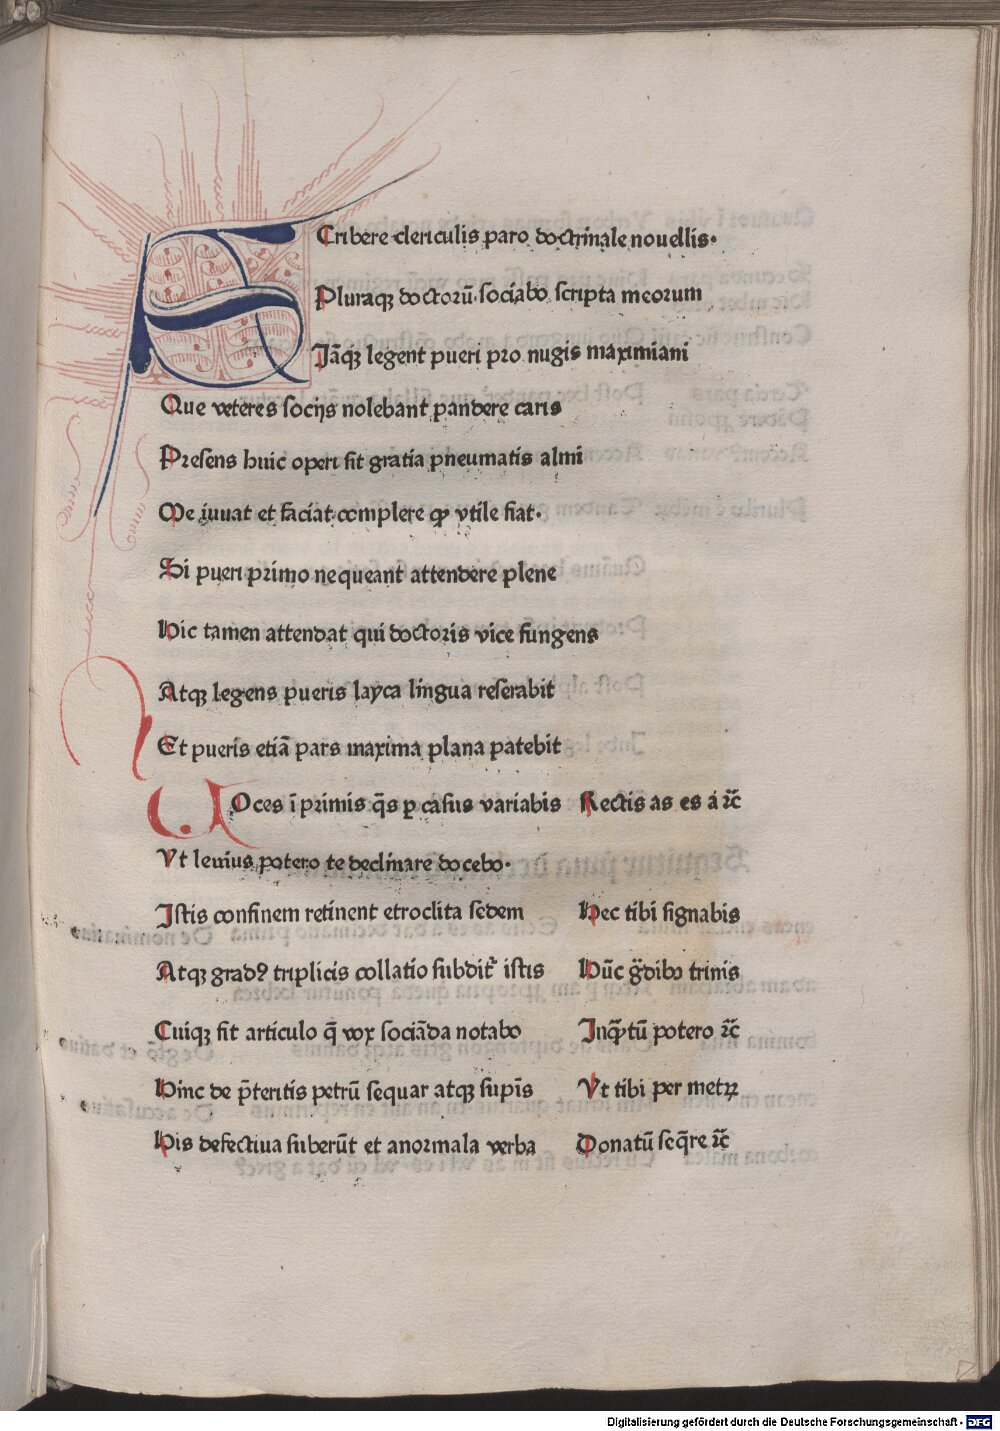 SCribere clericulis paro doctrinale nouellis·
Pluraqꝫ doctorū sociabo scripta meorum
Jāqꝫ legent pueri pro nugis maximiani
Que veteres socijs nolebant pandere caris
Presens huic operi sit gratia pneumatis almi
Me iuuat et faciat complere qꝫ vtile fiat·
Si pueri primo nequeant attendere plene
Hic tamen attendat qui doctoris vice fungens
Atqꝫ legens pueris layca lingua reserabit
Et pueris etiā pars maxima plana patebit
VOces ī primis q̄s ꝑ casus variabis Rectis as es á ⁊c̄
Vt leuius potero te declinare docebo·
Jstis confinem retinent etroclita sedem Hec tibi signabis
Atqꝫ gradꝰ triplicis collatio subdit᷑ istis Hūc g̈dibꝫ trinis
Cuiqꝫ sit articulo q̄ vox sociāda notabo Jnq̄tū potero ⁊c̄
Hinc de p̄teritis petrū sequar atqꝫ supīs Vt tibi per metꝝ
His defectiua suberūt et anormala verba Donatū seq̄re ⁊c̄
Digitalisierung gefördert durch die Deutsche Forschungsgemeinschaft - DFG